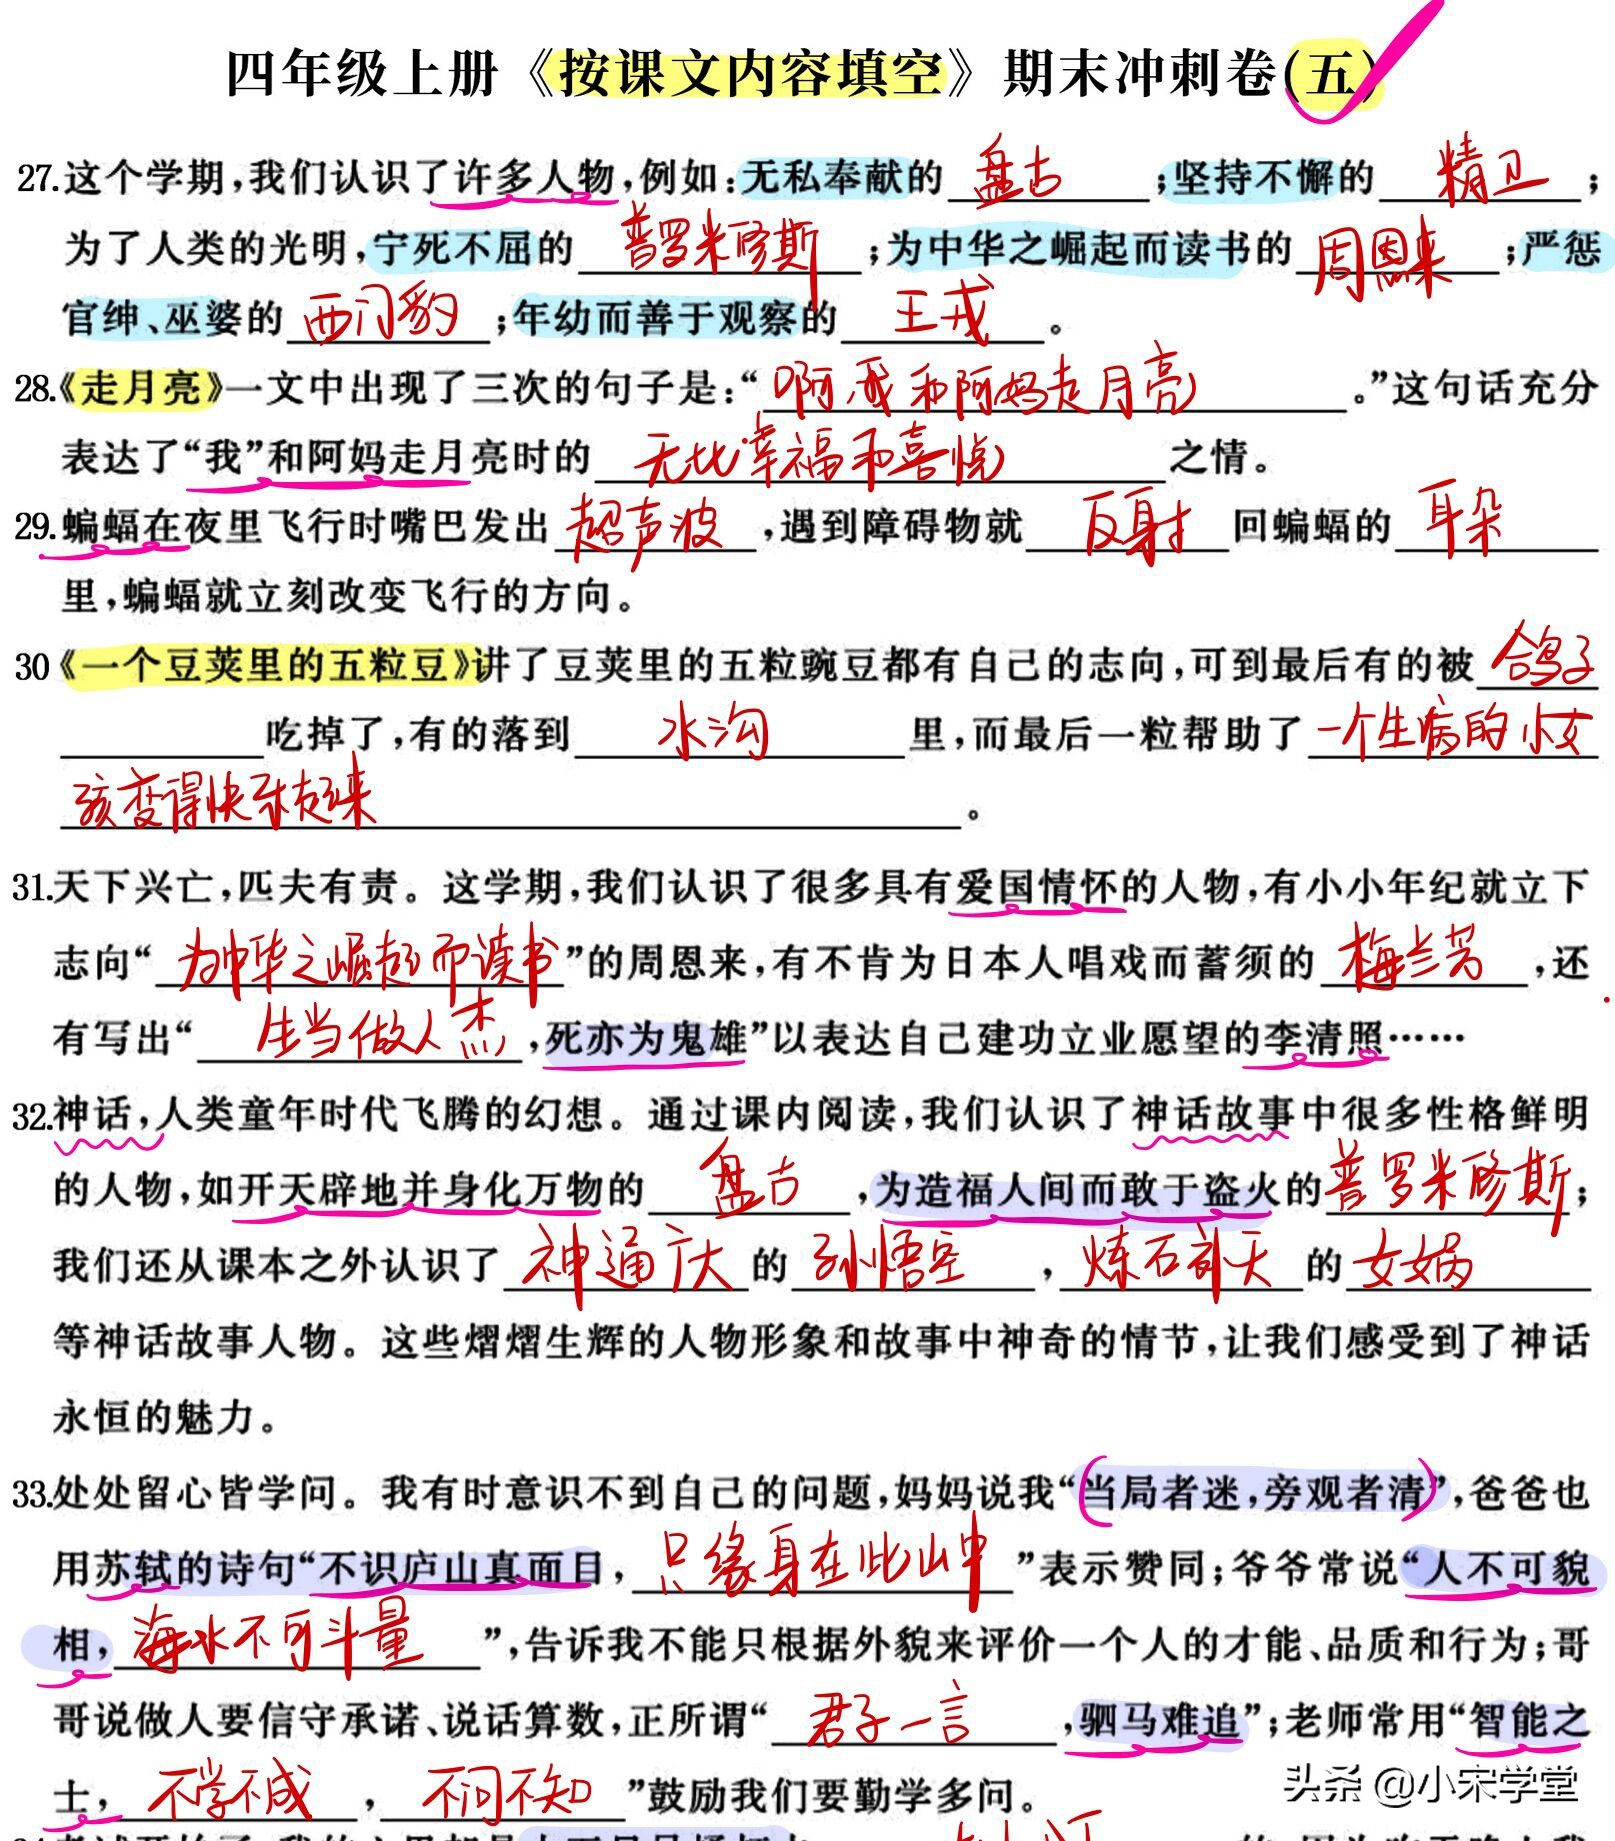 四年级上册《按课文内容填空》期末冲刺卷(五)
27.这个学期,我们认识了许多人物,例如:无私奉献的 盘古 ;坚持不懈的 精卫 ;
为了人类的光明,宁死不屈的 普罗米修斯 ;为中华之崛起而读书的 周恩来 ;严惩
官绅、巫婆的 西门豹 ;年幼而善于观察的 王戎 。
28.《走月亮》一文中出现了三次的句子是:“ 啊,我和阿妈走月亮 。”这句话充分
表达了“我”和阿妈走月亮时的 无比幸福和喜悦 之情。
29.蝙蝠在夜里飞行时嘴巴发出 超声波 ,遇到障碍物就 反射 回蝙蝠的 耳朵
里,蝙蝠就立刻改变飞行的方向。
30《一个豆荚里的五粒豆》讲了豆荚里的五粒豌豆都有自己的志向,可到最后有的被 鸽子
吃掉了,有的落到 水沟 里,而最后一粒帮助了 一个生病的小女
孩变得快乐起来 。
31.天下兴亡,匹夫有责。这学期,我们认识了很多具有爱国情怀的人物,有小小年纪就立下
志向“ 为中华之崛起而读书 ”的周恩来,有不肯为日本人唱戏而蓄须的 梅兰芳 ,还
有写出“ 生当做人杰 ,死亦为鬼雄”以表达自己建功立业愿望的李清照……
32.神话,人类童年时代飞腾的幻想。通过课内阅读,我们认识了神话故事中很多性格鲜明
的人物,如开天辟地并身化万物的 盘古 ,为造福人间而敢于盗火的 普罗米修斯 ;
我们还从课本之外认识了 神通广大 的 孙悟空 , 炼石补天 的 女娲
等神话故事人物。这些熠熠生辉的人物形象和故事中神奇的情节,让我们感受到了神话
永恒的魅力。
33.处处留心皆学问。我有时意识不到自己的问题,妈妈说我“当局者迷,旁观者清”,爸爸也
用苏轼的诗句“不识庐山真面目, 只缘身在此山中 ”表示赞同;爷爷常说“人不可貌
相, 海水不可斗量 ”,告诉我不能只根据外貌来评价一个人的才能、品质和行为;哥
哥说做人要信守承诺、说话算数,正所谓“ 君子一言 ,驷马难追”;老师常用“智能之
士, 不学不成 , 不问不知 ”鼓励我们要勤学多问。
头条 @小宋学堂